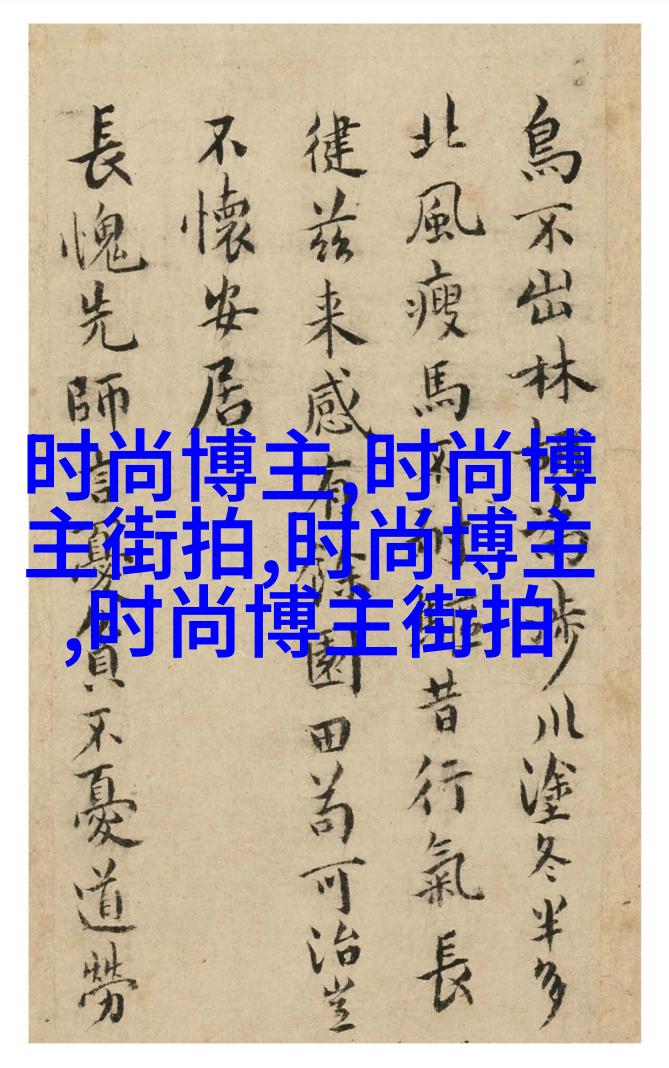 鳥不出林涉川塗冬半多
北風瘦馬不昔行氣長
徤茲来感有餘園田苟可治豈
不懷安居
長愧先師言憂貧不憂道勞
时尚博主,时尚博
主街拍,时尚博主
,时尚博主街拍